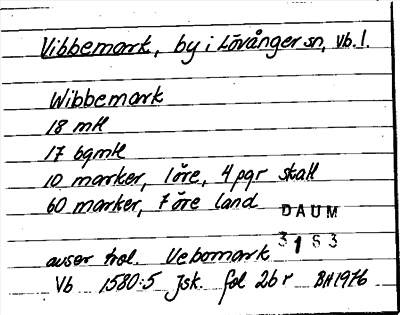 Vibbemark, by i Lövånger sn, Vb. l.
Wibbemark
18 mtl
17 bgmtl
10 marker, 1 öre, 4 pgr skatt
60 marker, 7 öre land
DAUM
3163
avser trol. Vebomark
Vb 1580:5 Jsk. fol 26 r BH 1976